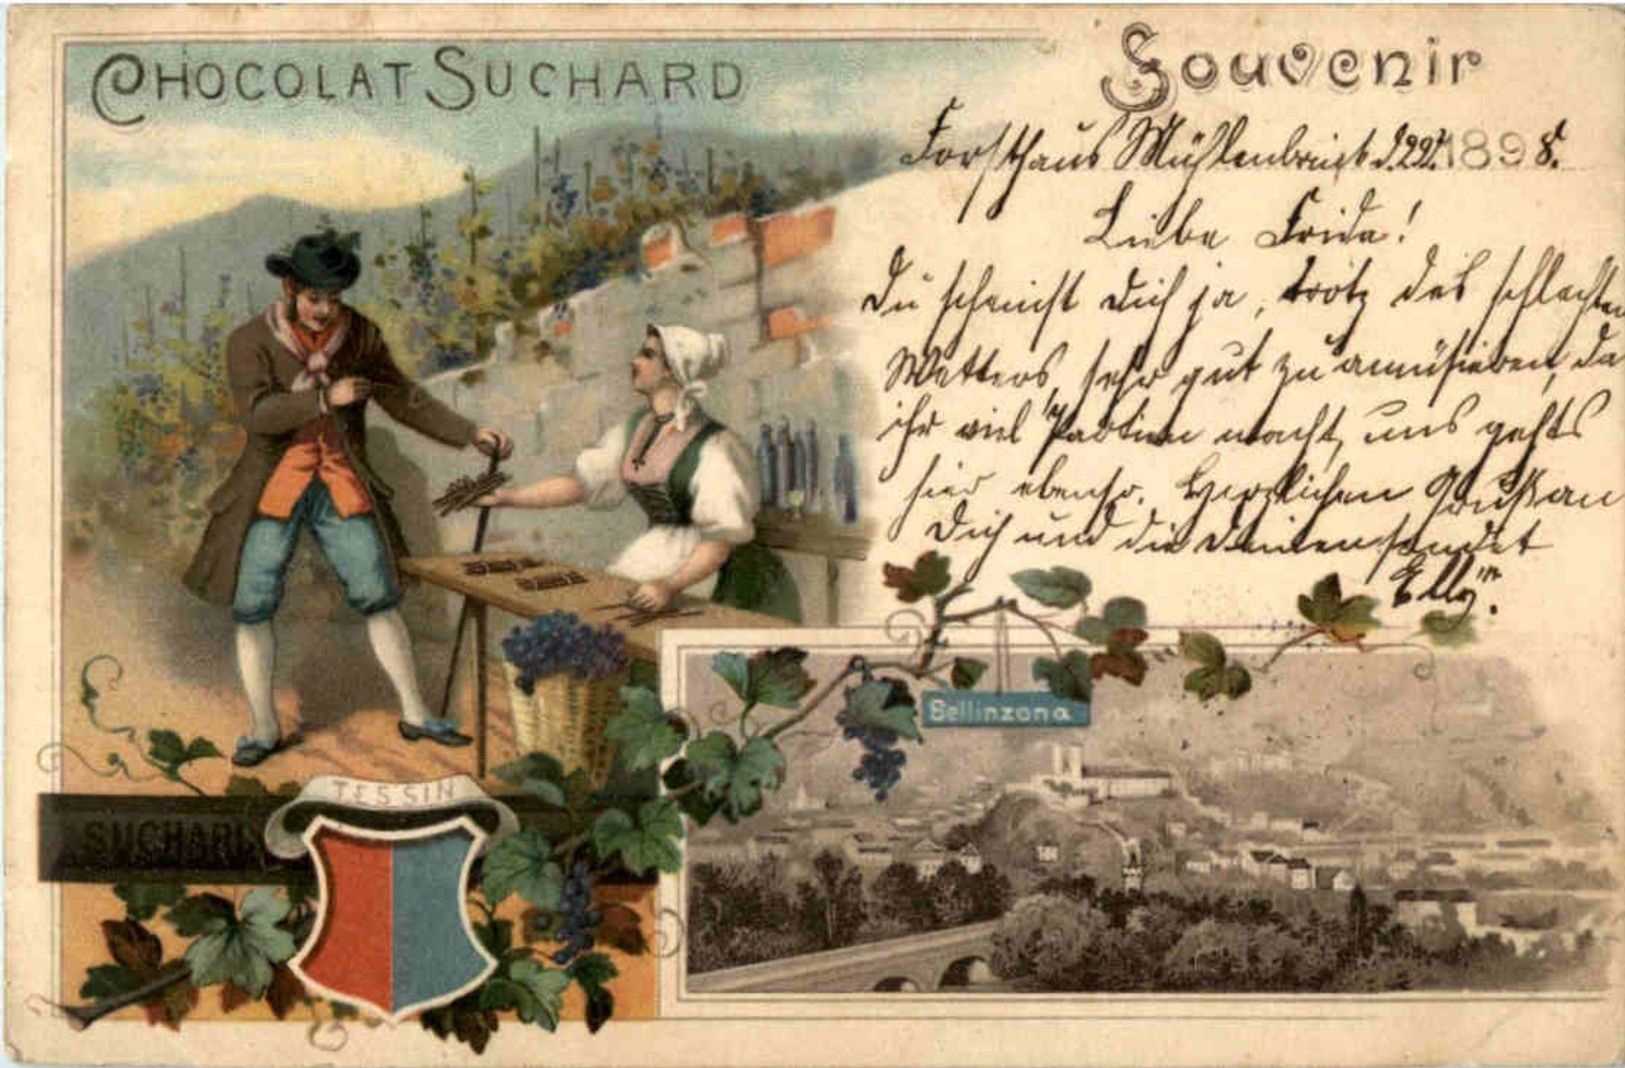 CHOCOLAT SUCHARD
Souvenir
Forsthaus Mühlenbruch d. 22. 1898.
Liebe Frida!
Du scheinst Dich ja, trotz des schlechten
Wetters, sehr gut zu amüsieren, da
ihr viel Partien macht, uns gehts
hier ebenso. Herzlichen Gruß an
Dich und die Deinen sendet
Elly.
Bellinzona
TESSIN
SUCHARD